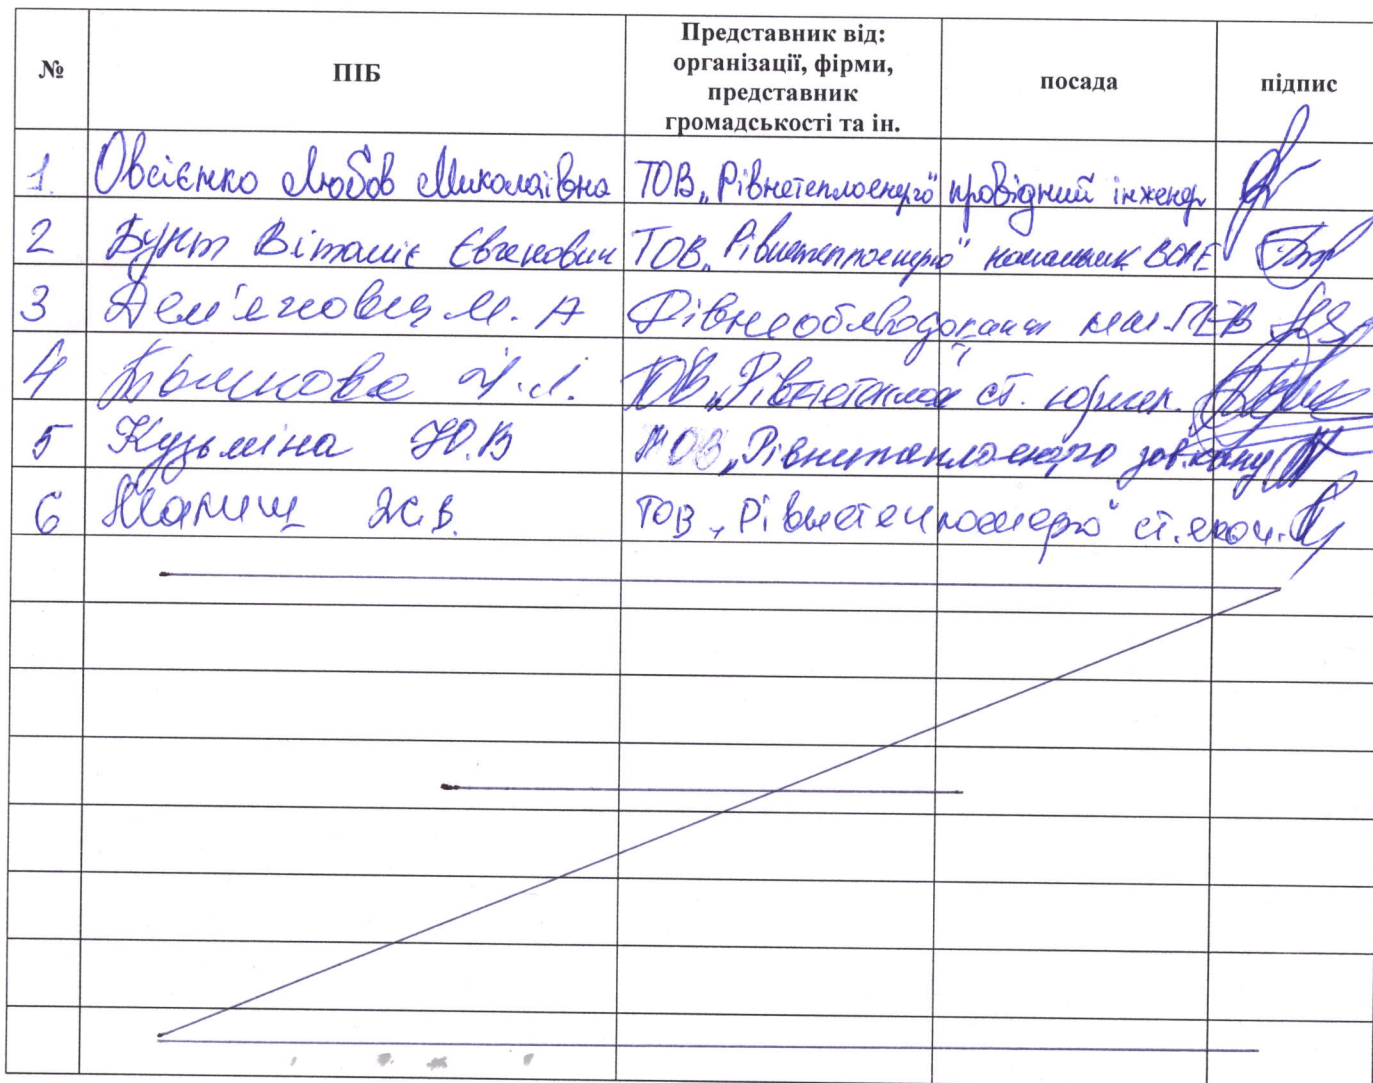 № ПІБ Представник від: організації, фірми, представник громадськості та ін. посада підпис
1. Овсієнко Любов Миколаївна ТОВ „Рівнетеплоенерго" провідний інженер
2 Бунт Віталіє Євгенович ТОВ „Рівнетеплоенерго" начальник
3 Дем'янович М. А Рівнеоблводоканал
4 Н.Л. ТОВ „Рівнетепло ст. юрист.
5 Кузьміна Ю.В ТОВ „Рівнетеплоенерго зав.канц
6 Ж.В. ТОВ „Рівнетеплоенерго" ст. екон.